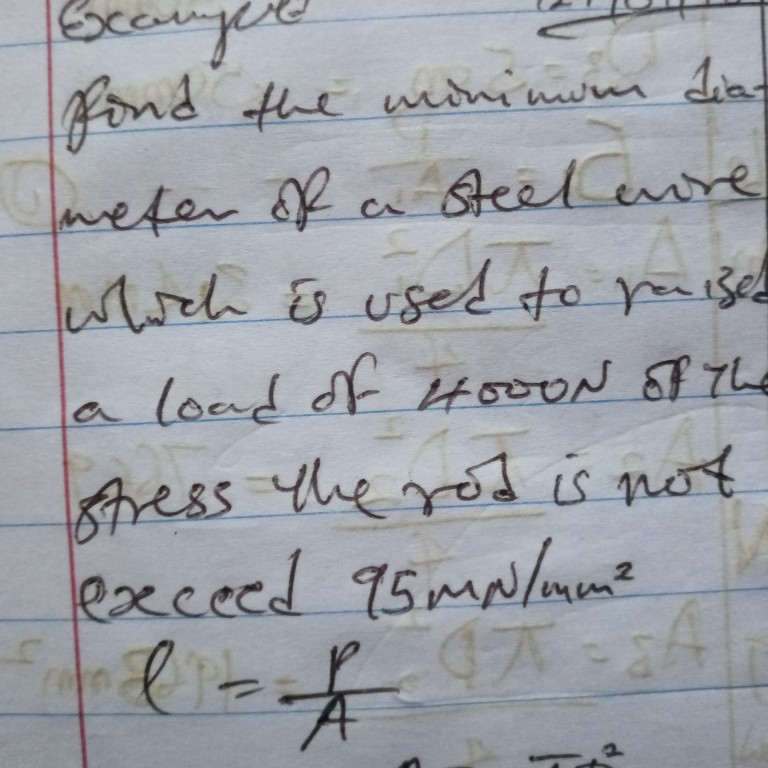 Example
find the minimum dia-
meter of a steel wire
which is used to raised
a load of 4000N of the
stress the rod is not
exceed 95MN/mm²
l = P/A